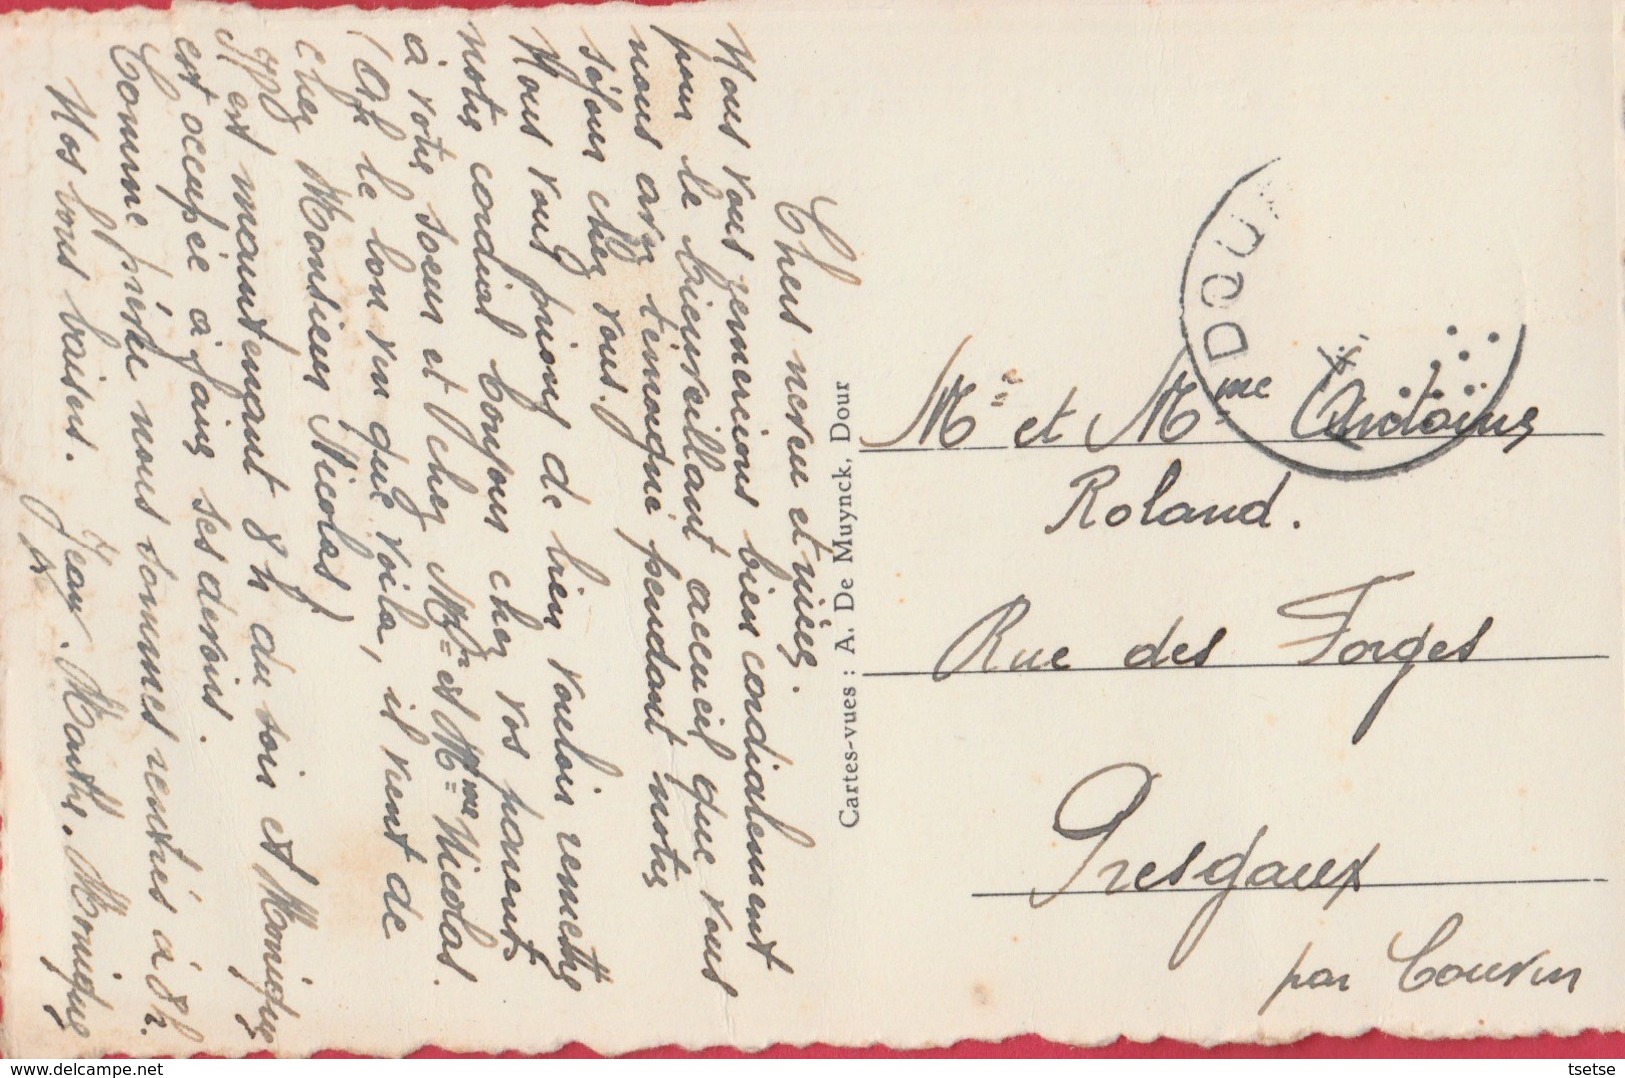 Chers neveu et nièce.
Nous vous remercions bien cordialement
pour le bienveillant accueil que vous
nous avez témoigné pendant notre
séjour chez vous.
Nous vous prions de bien vouloir remettre
notre cordial bonjour chez vos parents
à votre soeur et chez Mr et Mme Nicolas.
(Ah le bon vin que voilà, il vient de
chez Monsieur Nicolas)
Il est maintenant 8 h du soir et Monique
est occupée à faire ses devoirs.
Comme prévu nous sommes rentrés à 8h.
Nos bons baisers. Jean. Marthe. Monique
Cartes-vues : A. De Muynck, Dour
DOU
Mr et Mme Antoine
Roland.
Rue des Forges
Presgaux
par Couvin
© delcampe.net
tsetse